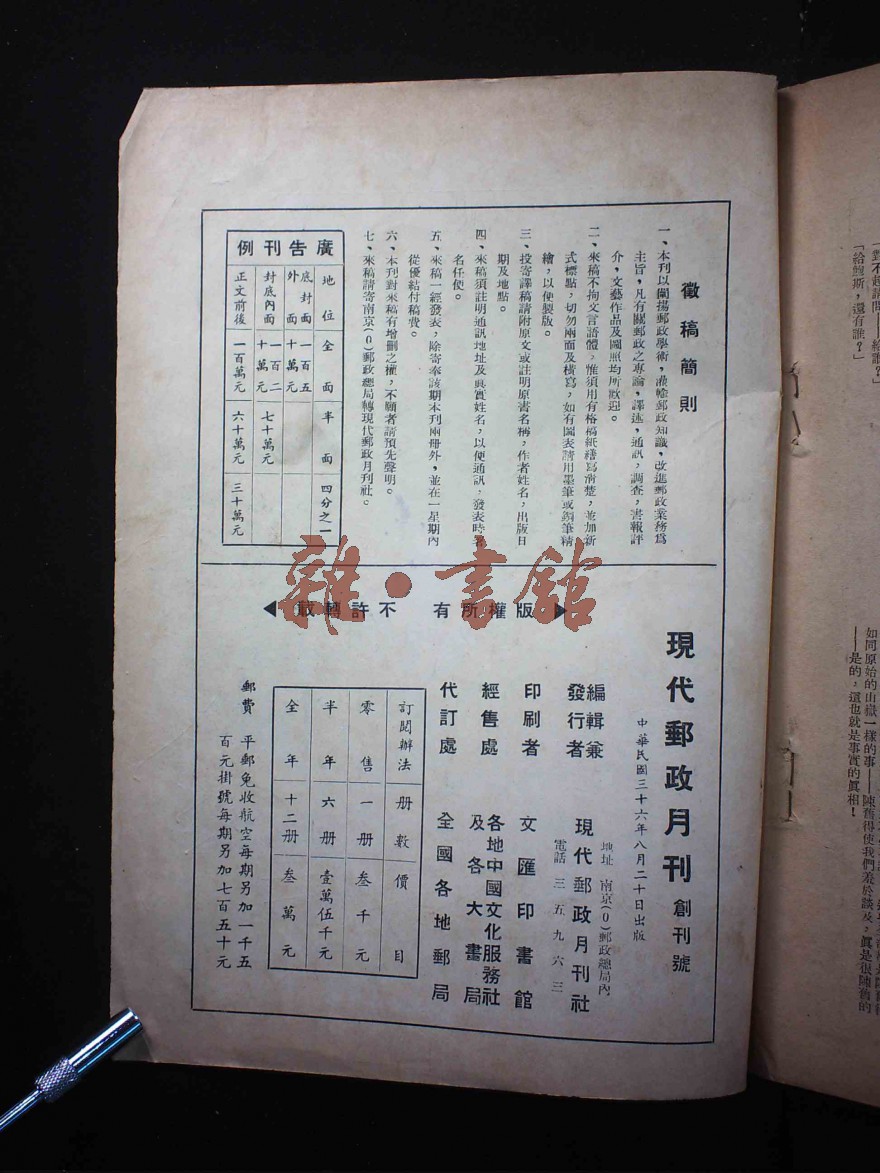 徵稿簡則
一、本刊以闡揚郵政學術，灌輸郵政知識，改進郵政業務爲
主旨，凡有關郵政之專論，譯述，通訊，調查，書報評
介，文藝作品及圖照均所歡迎。
二、來稿不拘文言語體，惟須用有格稿紙繕寫清楚，並加新
式標點，切勿兩面及橫寫，如有圖表請用墨筆或鋼筆精
繪，以便製版。
三、投寄譯稿請附原文或註明原書名稱，作者姓名，出版日
期及地點。
四、來稿須註明通訊地址及眞實姓名，以便通訊，發表時署
名任便。
五、來稿一經發表，除寄奉該期本刊兩冊外，並在一星期內
從優結付稿費。
六、本刊對來稿有增刪之權，不願者請預先聲明。
七、來稿請寄南京(0)郵政總局轉現代郵政月刊社。
廣告刊例
地位 全面 半面 四分之一
底封面外面 一百五十萬元
封底內面 一百二十萬元 七十萬元
正文前後 一百萬元 六十萬元 三十萬元
版權所有 不許轉載
雜·書館
現代郵政月刊 創刊號
中華民國三十六年八月二十日出版
編輯兼發行者 現代郵政月刊社
地址 南京(0)郵政總局內
電話 三五九六三
印刷者 文匯印書館
經售處 各地中國文化服務社及各大書局
代訂處 全國各地郵局
訂閱辦法 冊數 價目
零售 一冊 叁千元
半年 六冊 壹萬伍千元
全年 十二冊 叁萬元
郵費 平郵免收航空每期另加一千五
百元掛號每期另加七百五十元
「對不起請問——給誰？」
「給鮑斯，還有誰？」
如同原始的山嶽一樣的事——陳舊得使我們羞於談及，眞是很陳舊的
——是的，這也就是事實的眞相！